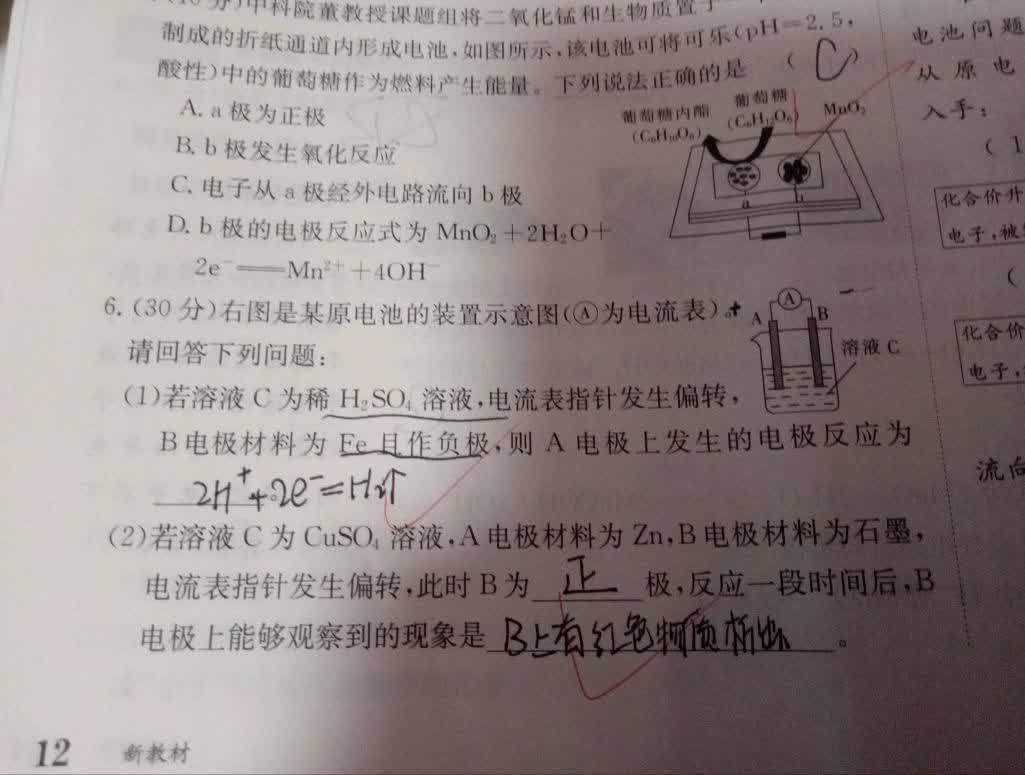 中科院董教授课题组将二氧化锰和生物质置于
制成的折纸通道内形成电池,如图所示,该电池可将可乐(pH=2.5,
酸性)中的葡萄糖作为燃料产生能量。下列说法正确的是 ( C )
A. a 极为正极
B. b 极发生氧化反应
C. 电子从 a 极经外电路流向 b 极
D. b 极的电极反应式为 MnO₂+2H₂O+
2e⁻══Mn²⁺+4OH⁻
葡萄糖内酯
(C₆H₁₀O₆)
葡萄糖
(C₆H₁₂O₆)
MnO₂
a
b
6. (30 分)右图是某原电池的装置示意图(Ⓐ为电流表)。
请回答下列问题:
+ A
A
B
－
溶液 C
(1)若溶液 C 为稀 H₂SO₄ 溶液,电流表指针发生偏转,
B 电极材料为 Fe 且作负极,则 A 电极上发生的电极反应为
2H⁺+2e⁻=H₂↑
(2)若溶液 C 为 CuSO₄ 溶液,A 电极材料为 Zn,B 电极材料为石墨,
电流表指针发生偏转,此时 B 为 正 极,反应一段时间后,B
电极上能够观察到的现象是 B上有红色物质析出 。
12 新教材
电池问题
从原电
入手:
(1
化合价升
电子,被
(
化合价
电子,
流向